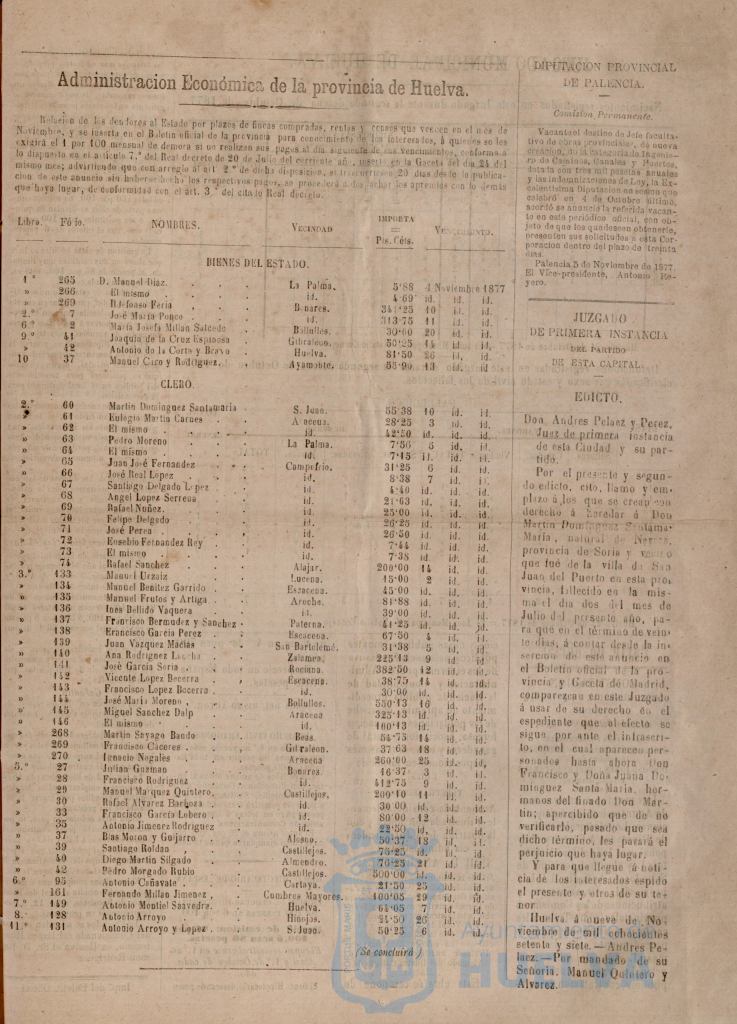 Administracion Económica de la provincia de Huelva.
Relacion de los deudores al Estado por plazos de fincas compradas, rentas y censos que vencen en el mes de
Noviembre, y se inserta en el Boletin oficial de la provincia para conocimiento de los interesados, á quienes se les
exigirá el 1 por 100 mensual de demora si no realizan sus pagos al dia siguiente de sus vencimientos, conforme á
lo dispuesto en el artículo 7.º del Real decreto de 20 de Julio del corriente año, inserto en la Gaceta del 24 del
mismo mes; advirtiendo que con arreglo al art. 2.º de dicha disposicion, si trascurriesen 20 dias desde la publica-
cion de este anuncio sin haberse hecho los respectivos pagos, se procederá á despachar los apremios con lo demás
que haya lugar, de conformidad con el art. 3.º del citado Real decreto.
Libro. Fólio. NOMBRES. VECINDAD IMPORTA = Pts. Cénts. VENCIMIENTO.
BIENES DEL ESTADO.
1.º 265 D. Manuel Diaz. La Palma. 5'88 4 Noviembre 1877
» 266 El mismo id. 4'69 id. id. id.
» 269 Ildefonso Feria Bonares. 341'25 10 id. id.
2.º 7 José María Ponce id. 313'75 11 id. id.
6.º 2 María Josefa Millan Salcedo Bollullos. 30'00 20 id. id.
9.º 41 Joaquin de la Cruz Espinosa Gibraleon. 50'25 14 id. id.
» 42 Antonio de la Corte y Bravo Huelva. 81'50 26 id. id.
10 37 Manuel Caro y Rodriguez. Ayamonte. 55'90 13 id. id.
CLERO.
2.º 60 Martin Dominguez Santamaría S. Juan. 55'38 10 id. id.
» 61 Eulogio Martin Carnes Aracena 28'25 3 id. id.
» 62 El mismo id. 42'50 id. id. id.
» 63 Pedro Moreno La Palma. 7'56 5 id. id.
» 64 El mismo id. 7'15 id. id. id.
» 65 Juan José Fernandez Campofrio. 31'25 6 id. id.
» 66 José Real Lopez id. 8'38 7 id. id.
» 67 Santiago Delgado Lopez id. 4'40 id. id. id.
» 68 Angel Lopez Serrena id. 21'63 id. id. id.
» 69 Rafael Nuñez. id. 25'00 id. id. id.
» 70 Felipe Delgado id. 26'25 id. id. id.
» 71 José Perea id. 26'50 id. id. id.
» 72 Eusebio Fernandez Rey id. 7'44 id. id. id.
» 73 El mismo id. 7'38 id. id. id.
» 74 Rafael Sanchez Alajar. 200'00 14 id. id.
3.º 133 Manuel Urzaiz Lucena. 15'00 2 id. id.
» 134 Manuel Benitez Garrido Escacena. 45'00 id. id. id.
» 135 Manuel Frutos y Artiga Aroche. 81'88 id. id. id.
» 136 Inés Bellido Vaquera id. 39'00 id. id. id.
» 137 Francisco Bermudez y Sanchez Paterna. 41'25 id. id. id.
» 138 Francisco Garcia Perez Escacena. 67'50 4 id. id.
» 139 Juan Vazquez Macías San Bartolomé. 31'38 5 id. id.
» 140 Ana Rodriguez Zalamea. 225'13 9 id. id.
» 141 José Garcia Soria Rociana. 382'50 12 id. id.
» 142 Vicente Lopez Becerra Escacena. 38'75 14 id. id.
» 143 Francisco Lopez Becerra id. 30'00 id. id. id.
» 144 José María Moreno Bollullos. 550'13 16 id. id.
» 145 Miguel Sanchez Dalp Aracena 325'13 id. id. id.
» 146 El mismo id. 100'13 id. id. id.
» 268 Martin Sayago Bando Beas. 54'75 14 id. id.
» 269 Francisco Cáceres Gibraleon. 37'63 18 id. id.
» 270 Ignacio Nogales Aracena 260'00 25 id. id.
5.º 27 Julian Guzman Bonares. 46'37 3 id. id.
» 28 Francisco Rodriguez id. 412'75 9 id. id.
» 29 Manuel Marquez Quintero. Castillejos. 200'10 11 id. id.
» 30 Rafael Alvarez Barboza id. 30'00 id. id. id.
» 33 Francisco Garcia Lobero id. 80'00 12 id. id.
» 35 Antonio Jimenez Rodriguez id. 22'50 id. id. id.
» 37 Blas Moron y Guijarro Alosno. 50'37 18 id. id.
» 39 Santiago Roldan Castillejos. 75'25 id. id. id.
» 40 Diego Martin Silgado Almendro. 76'25 21 id. id.
» 42 Pedro Morgado Rubio Castillejos. 500'00 id. id.
6.º 95 Antonio Cañavate Cartaya. 21'50 25 id. id.
» 161 Fernando Millan Jimenez Cumbres Mayores. 100'05 29 id. id.
7.º 149 Antonio Montiel Saavedra. Huelva. 64'05 7 id. id.
8.º 128 Antonio Arroyo Hinojos. 24'50 26 id. id.
11.º 131 Antonio Arroyo y Lopez S. Juan. 50'25 6 id. id.
(Se concluirá)
DIPUTACION PROVINCIAL
DE PALENCIA.
Comision Permanente.
Vacante el destino de Jefe faculta-
tivo de obras provinciales, de nueva
creacion, de la categoría de Ingenie-
ro de Caminos, Canales y Puertos,
dotada con tres mil pesetas anuales
y las indemnizaciones de Ley, la Ex-
celentísima Diputacion en sesion que
celebró en 4 de Octubre último,
acordó se anuncie la referida vacan-
te en este periódico oficial, con ob-
jeto de que los que deseen obtenerle,
presenten sus solicitudes á esta Cor-
poracion dentro del plazo de treinta
dias.
Palencia 5 de Noviembre de 1877
El Vice-presidente, Antonio Re-
yero.
JUZGADO
DE PRIMERA INSTANCIA
DEL PARTIDO
DE ESTA CAPITAL.
EDICTO.
Don Andres Pelaez y Perez,
Juez de primera instancia
de esta Ciudad y su par-
tido.
Por el presente y segun-
do edicto, cito, llamo y em-
plazo á los que se crean con
derecho á heredar á Don
Martin Dominguez Santama-
María, natural de
provincia de Soria y vecino
que fué de la villa de San
Juan del Puerto en esta pro-
vincia, fallecido en la mis-
ma el dia dos del mes de
Julio del presente año, pa-
ra que en el término de vein-
te dias, á contar desde la in-
sercion de este anuncio en
el Boletin oficial de la pro-
vincia y Gaceta de Madrid,
comparezcan en este Juzgado
á usar de su derecho en el
espediente que al efecto se
sigue por ante el infrascri-
to, en el cual aparecen per-
sonados hasta ahora Don
Francisco y Doña Juana Do-
minguez Santa María, her-
manos del finado Don Mar-
tin; apercibido que de no
verificarlo, pasado que sea
dicho término, les parará el
perjuicio que haya lugar.
Y para que llegue á noti-
cia de los interesados espido
el presente y otros de su te-
nor
Huelva á nueve de No-
viembre de mil ochocientos
setenta y siete.—Andres Pe-
laez.—Por mandado de su
Señoria, Manuel Quintero y
Alvarez.
HUELVA